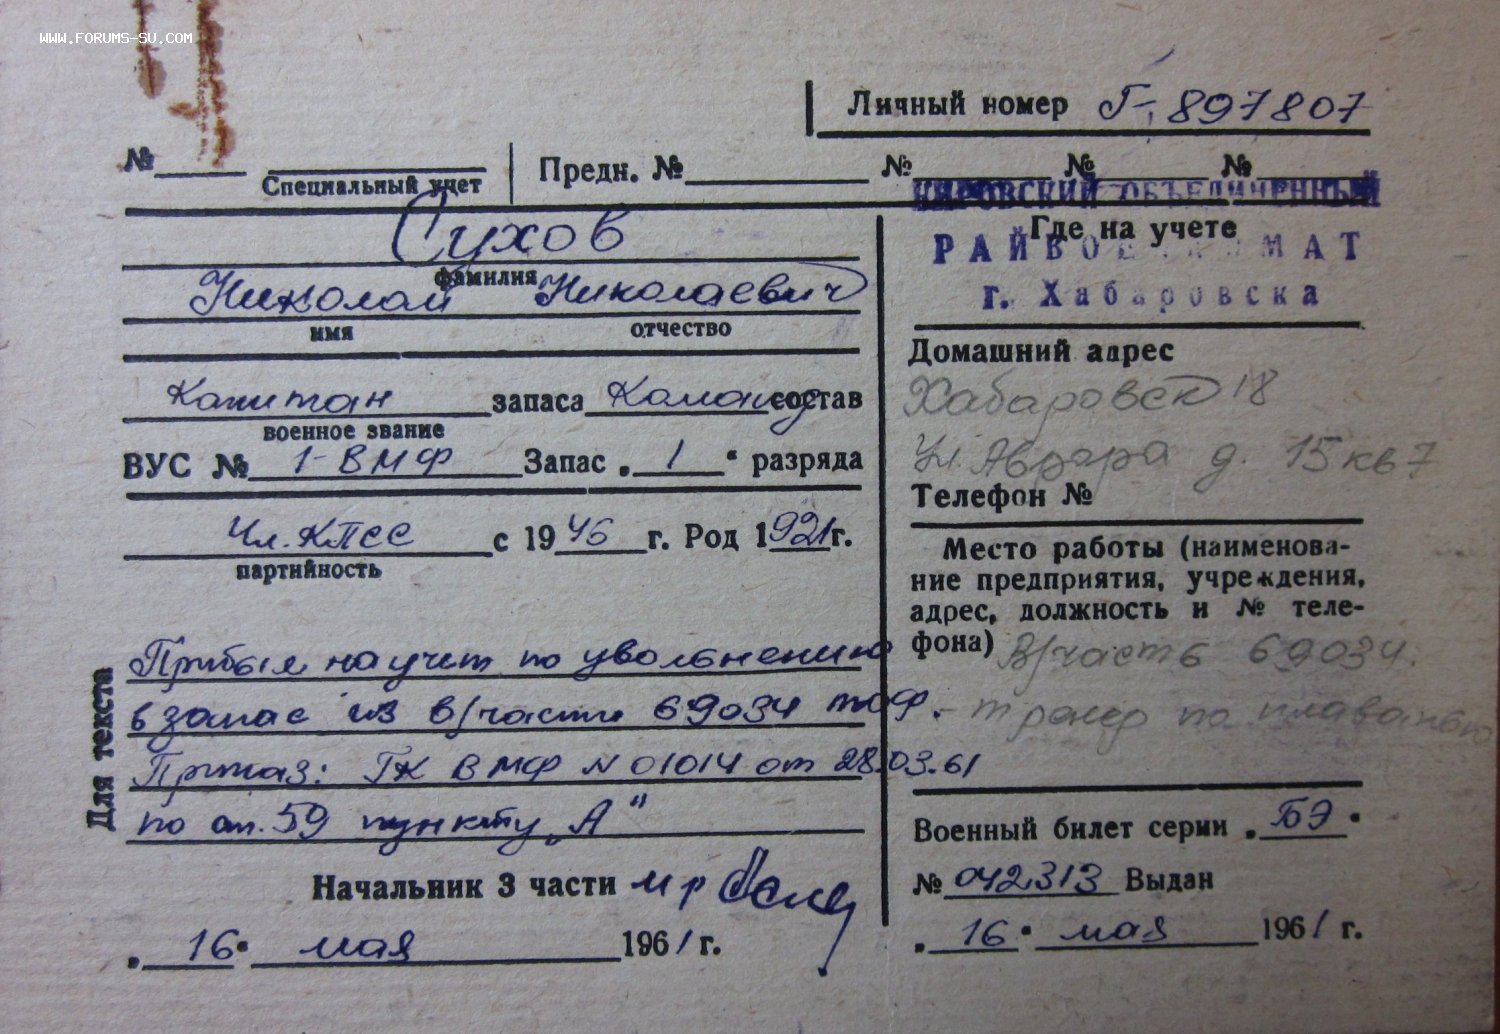 WWW.FORUMS-SU.COM
Личный номер Г-897807
№ Специальный учет Предн. № № № №
КИРОВСКИЙ ОБЪЕДИНЕННЫЙ
Где на учете
РАЙВОЕНКОМАТ
г. Хабаровска
Сухов
фамилия
Николай Николаевич
имя отчество
Капитан запаса Команд состав
военное звание
ВУС № 1-ВМФ Запас „ 1 “ разряда
Чл. КПСС с 1946 г. Род 1921 г.
партийность
Для текста
Прибыл на учет по увольнению
в запас из в/части 69034 тоф.
Приказ: ГК ВМФ N 01014 от 28.03.61
по ст. 59 пункту „А"
Начальник 3 части м-р
„ 16 “ мая 1961 г.
Домашний адрес
Хабаровск 18
ул. Аврора д. 15 кв 7
Телефон №
Место работы (наименова-
ние предприятия, учреждения,
адрес, должность и № теле-
фона) В/часть 69034.
- тренер по плаванью
Военный билет серии „ БЭ “
№ 042313 Выдан
„ 16 “ мая 1961 г.